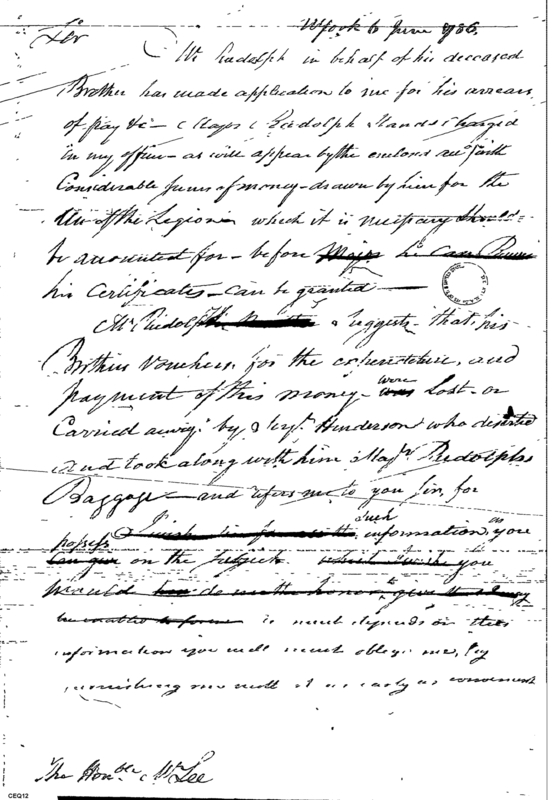 N York 6 June 1786.
Sir
Mr Rudolph in behalf of his deceased
Brother has made application to me for his arrears
of pay &c - Major Rudolph stands charged
in my office - as will appear by the enclosed acct with
Considerable sums of money - drawn by him for the
use of the Legion which it is necessary should
be accounted for - before Major he can
his Certificates - can be granted -
Mr Rudolph suggests - that his
Brothers Vouchers, for the expenditure, and
payment of this money - was were Lost - or
Carried away by Serjt. Henderson who deserted
and took along with him Majr Rudolphs
Baggage - and refers me to you Sir, for
such as
possess information you
can give on the subject which I wish you
would do me the honor to give
is much depends on this
information you will much oblige me, by
furnishing me with it as early as convenient
The Honble Mr Lee
CEQ12